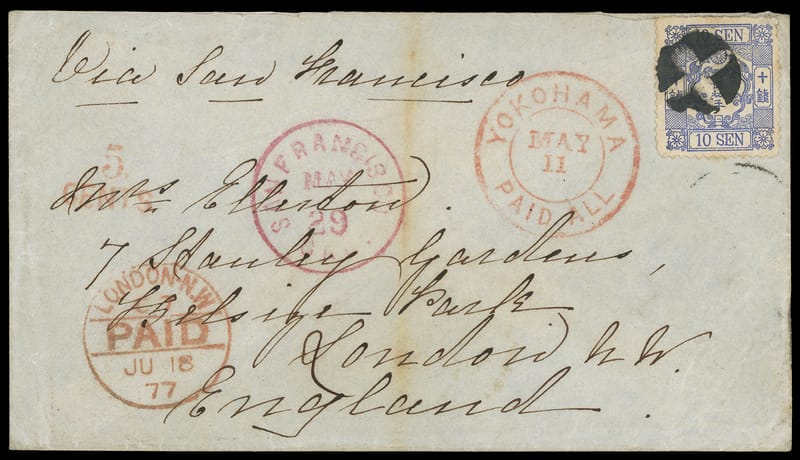 Via San Francisco
10 SEN
十
錢
10 SEN
YOKOHAMA
MAY
11
PAID ALL
SAN FRANCISCO
MAY
29
5
CENTS
Mrs Ellerton.
7 Stanley Gardens,
Belsize Park
London N.W.
England.
LONDON-N.W
PAID
JU 18
77